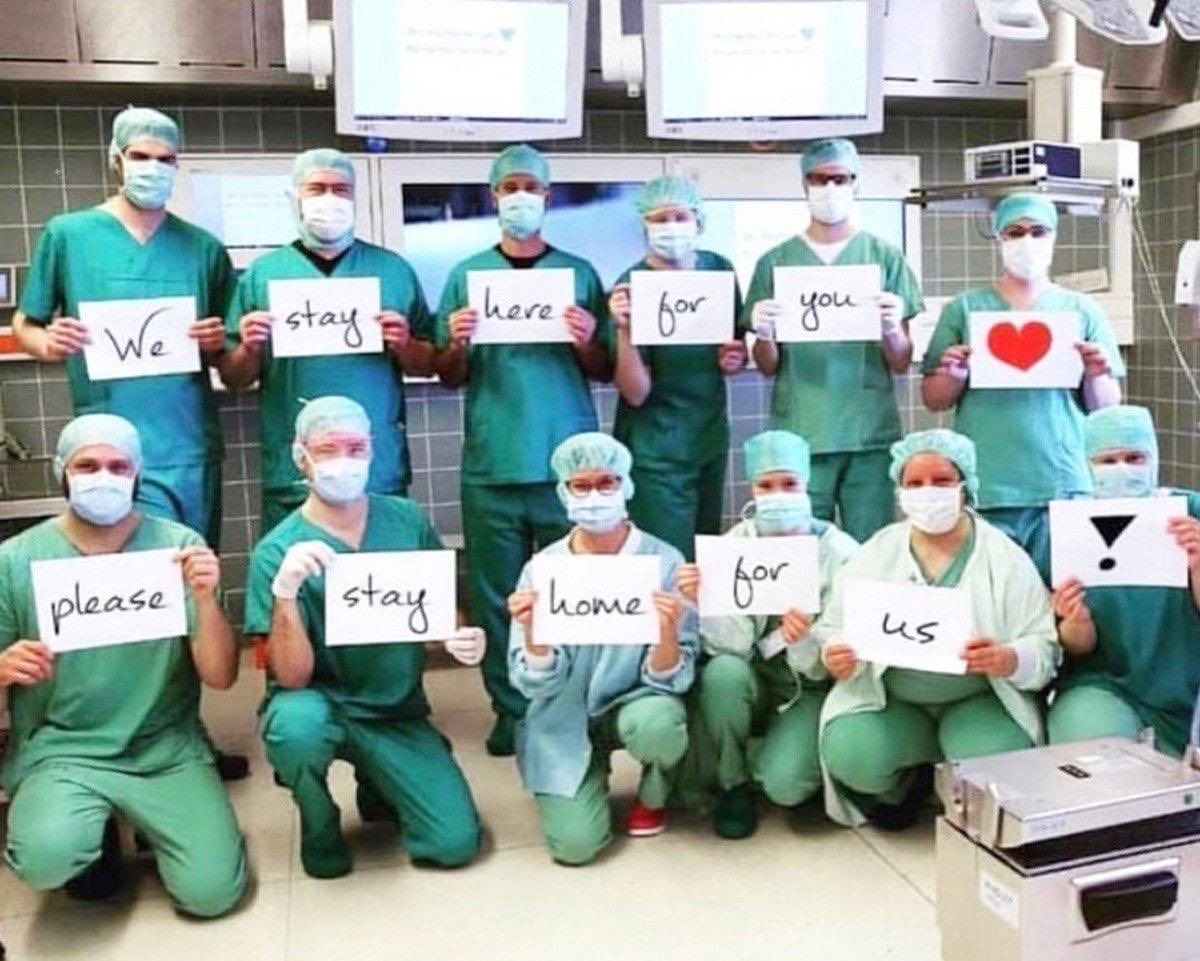 We stay here for you ❤
please stay home for us !